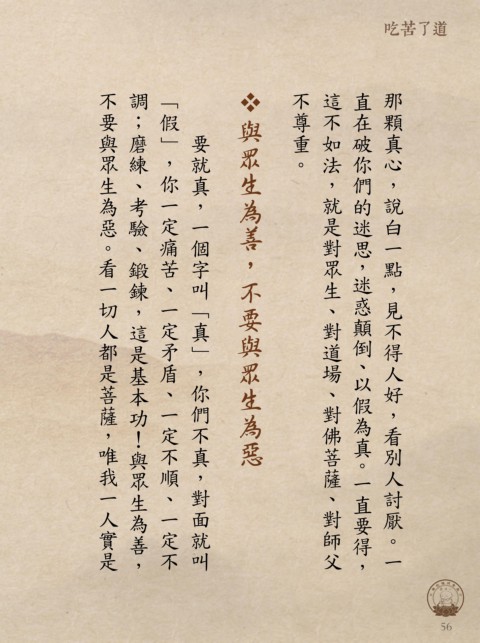 吃苦了道
那顆真心，說白一點，見不得人好，看別人討厭。一
直在破你們的迷思，迷惑顛倒、以假為真。一直要得，
這不如法，就是對眾生、對道場、對佛菩薩、對師父
不尊重。
❖ 與眾生為善，不要與眾生為惡
要就真，一個字叫「真」，你們不真，對面就叫
「假」，你一定痛苦、一定矛盾、一定不順、一定不
調；磨練、考驗、鍛鍊，這是基本功！與眾生為善，
不要與眾生為惡。看一切人都是菩薩，唯我一人實是
56